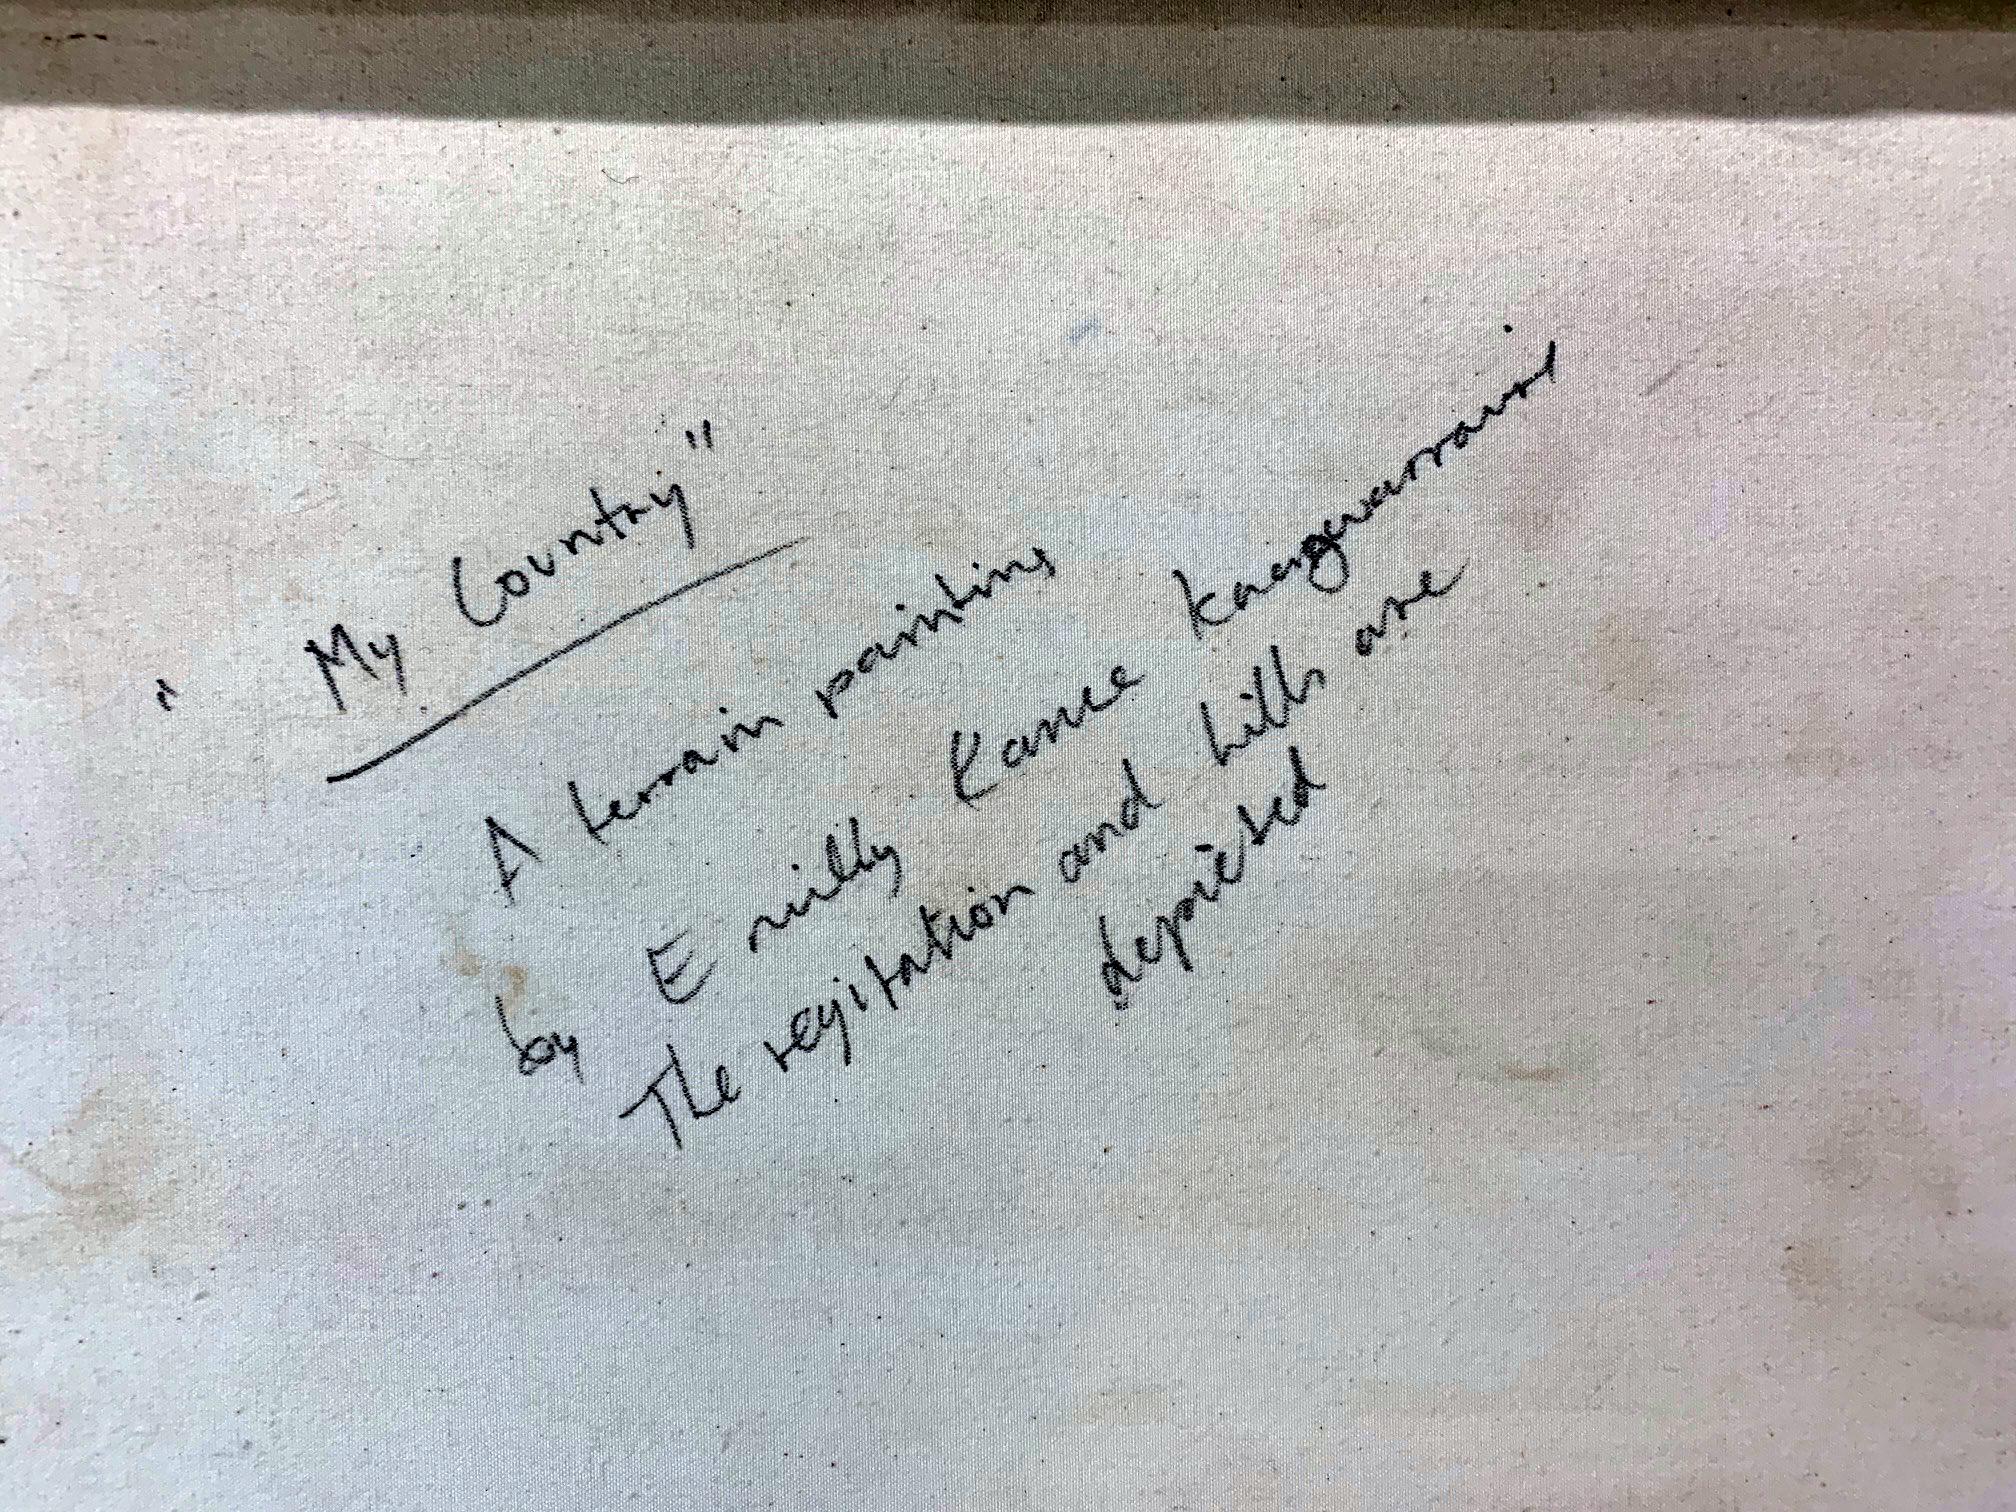 " My Country"
A terrain painting
by Emilly Kame Kangwarrawrl
The vegitation and hills are
depicted